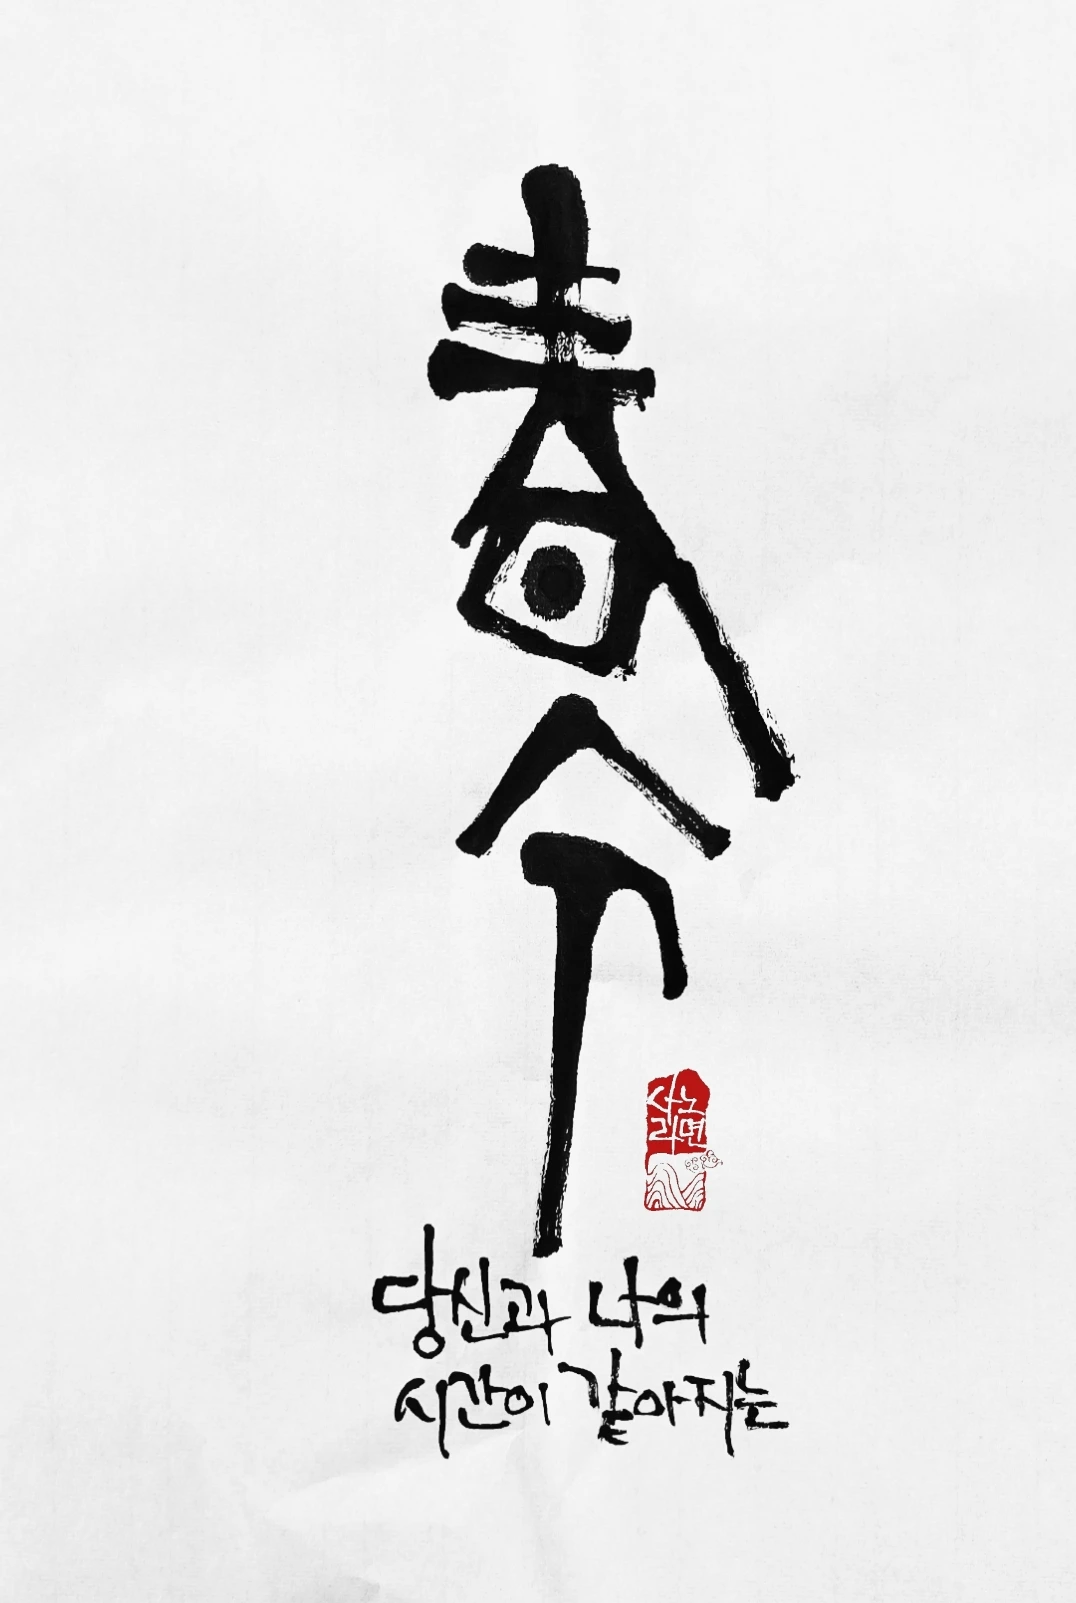 春分
사노
라면
당신과 나의
시간이 같아지는